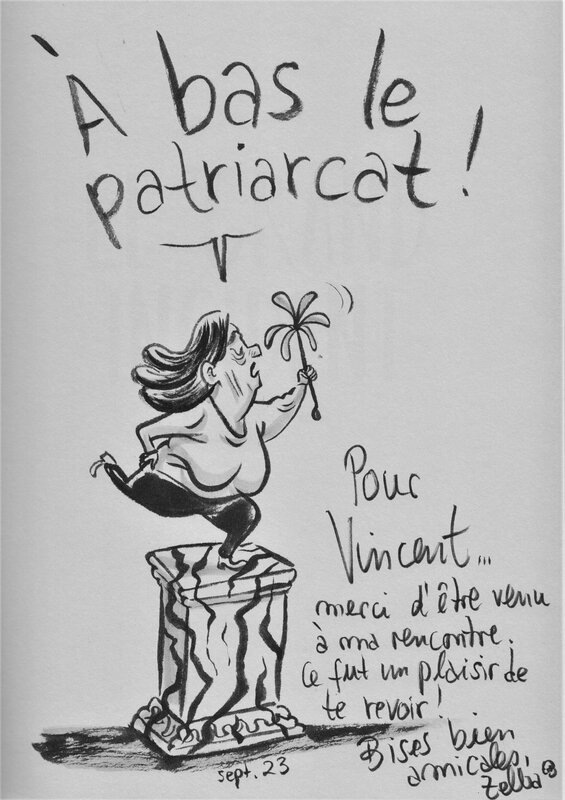 À bas le
patriarcat !
Pour
Vincent...
merci d'être venu
à ma rencontre.
Ce fut un plaisir de
te revoir !
Bises bien
amicales,
Zelba
sept. 23